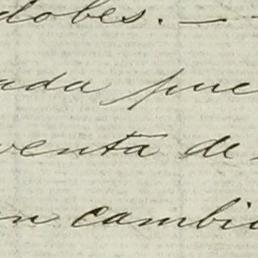 dobes. —
ada pue
venta de
n cambio